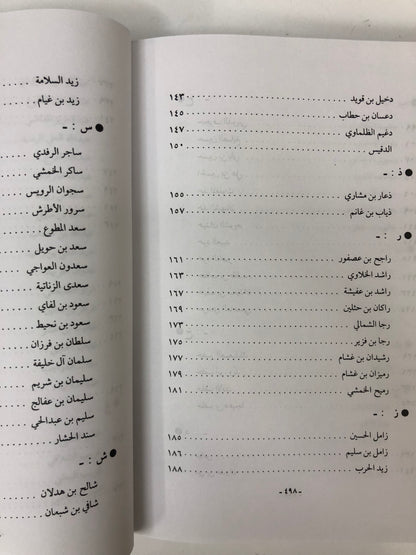 دخيل بن قويد ........ ١٤٣
دعسان بن حطاب ........ ١٤٥
دغيم الظلماوي ........ ١٤٧
الدقيس ........ ١٥٠
ذ : -
ذعار بن مشاري ........ ١٥٥
ذياب بن غانم ........ ١٥٧
ر : -
راجح بن عصفور ........ ١٦١
راشد الخلاوي ........ ١٦٣
راشد بن عفيشة ........ ١٦٧
راكان بن حثلين ........ ١٦٩
رجا الشمالي ........ ١٧٣
رجا بن فزير ........ ١٧٥
رشيدان بن غشام ........ ١٧٧
رميزان بن غشام ........ ١٧٩
رميح الخمشي ........ ١٨١
ز : -
زامل الحسين ........ ١٨٥
زامل بن سليم ........ ١٨٦
زيد الحرب ........ ١٨٨
- ٤٩٨ -
زيد السلامة
زيد بن غيام
س : -
ساجر الرفدي
ساكر الخمشي
سجوان الرويس
سرور الأطرش
سعد المطوع
سعد بن حويل
سعدون العواجي
سعدى الزناتية
سعود بن لفاي
سعود بن نحيط
سلطان بن فرزان
سلمان آل خليفة
سليمان بن شريم
سليمان بن عفالج
سليم بن عبدالحي
سند الحشار
ش : -
شالح بن هدلان
شافي بن شبعان